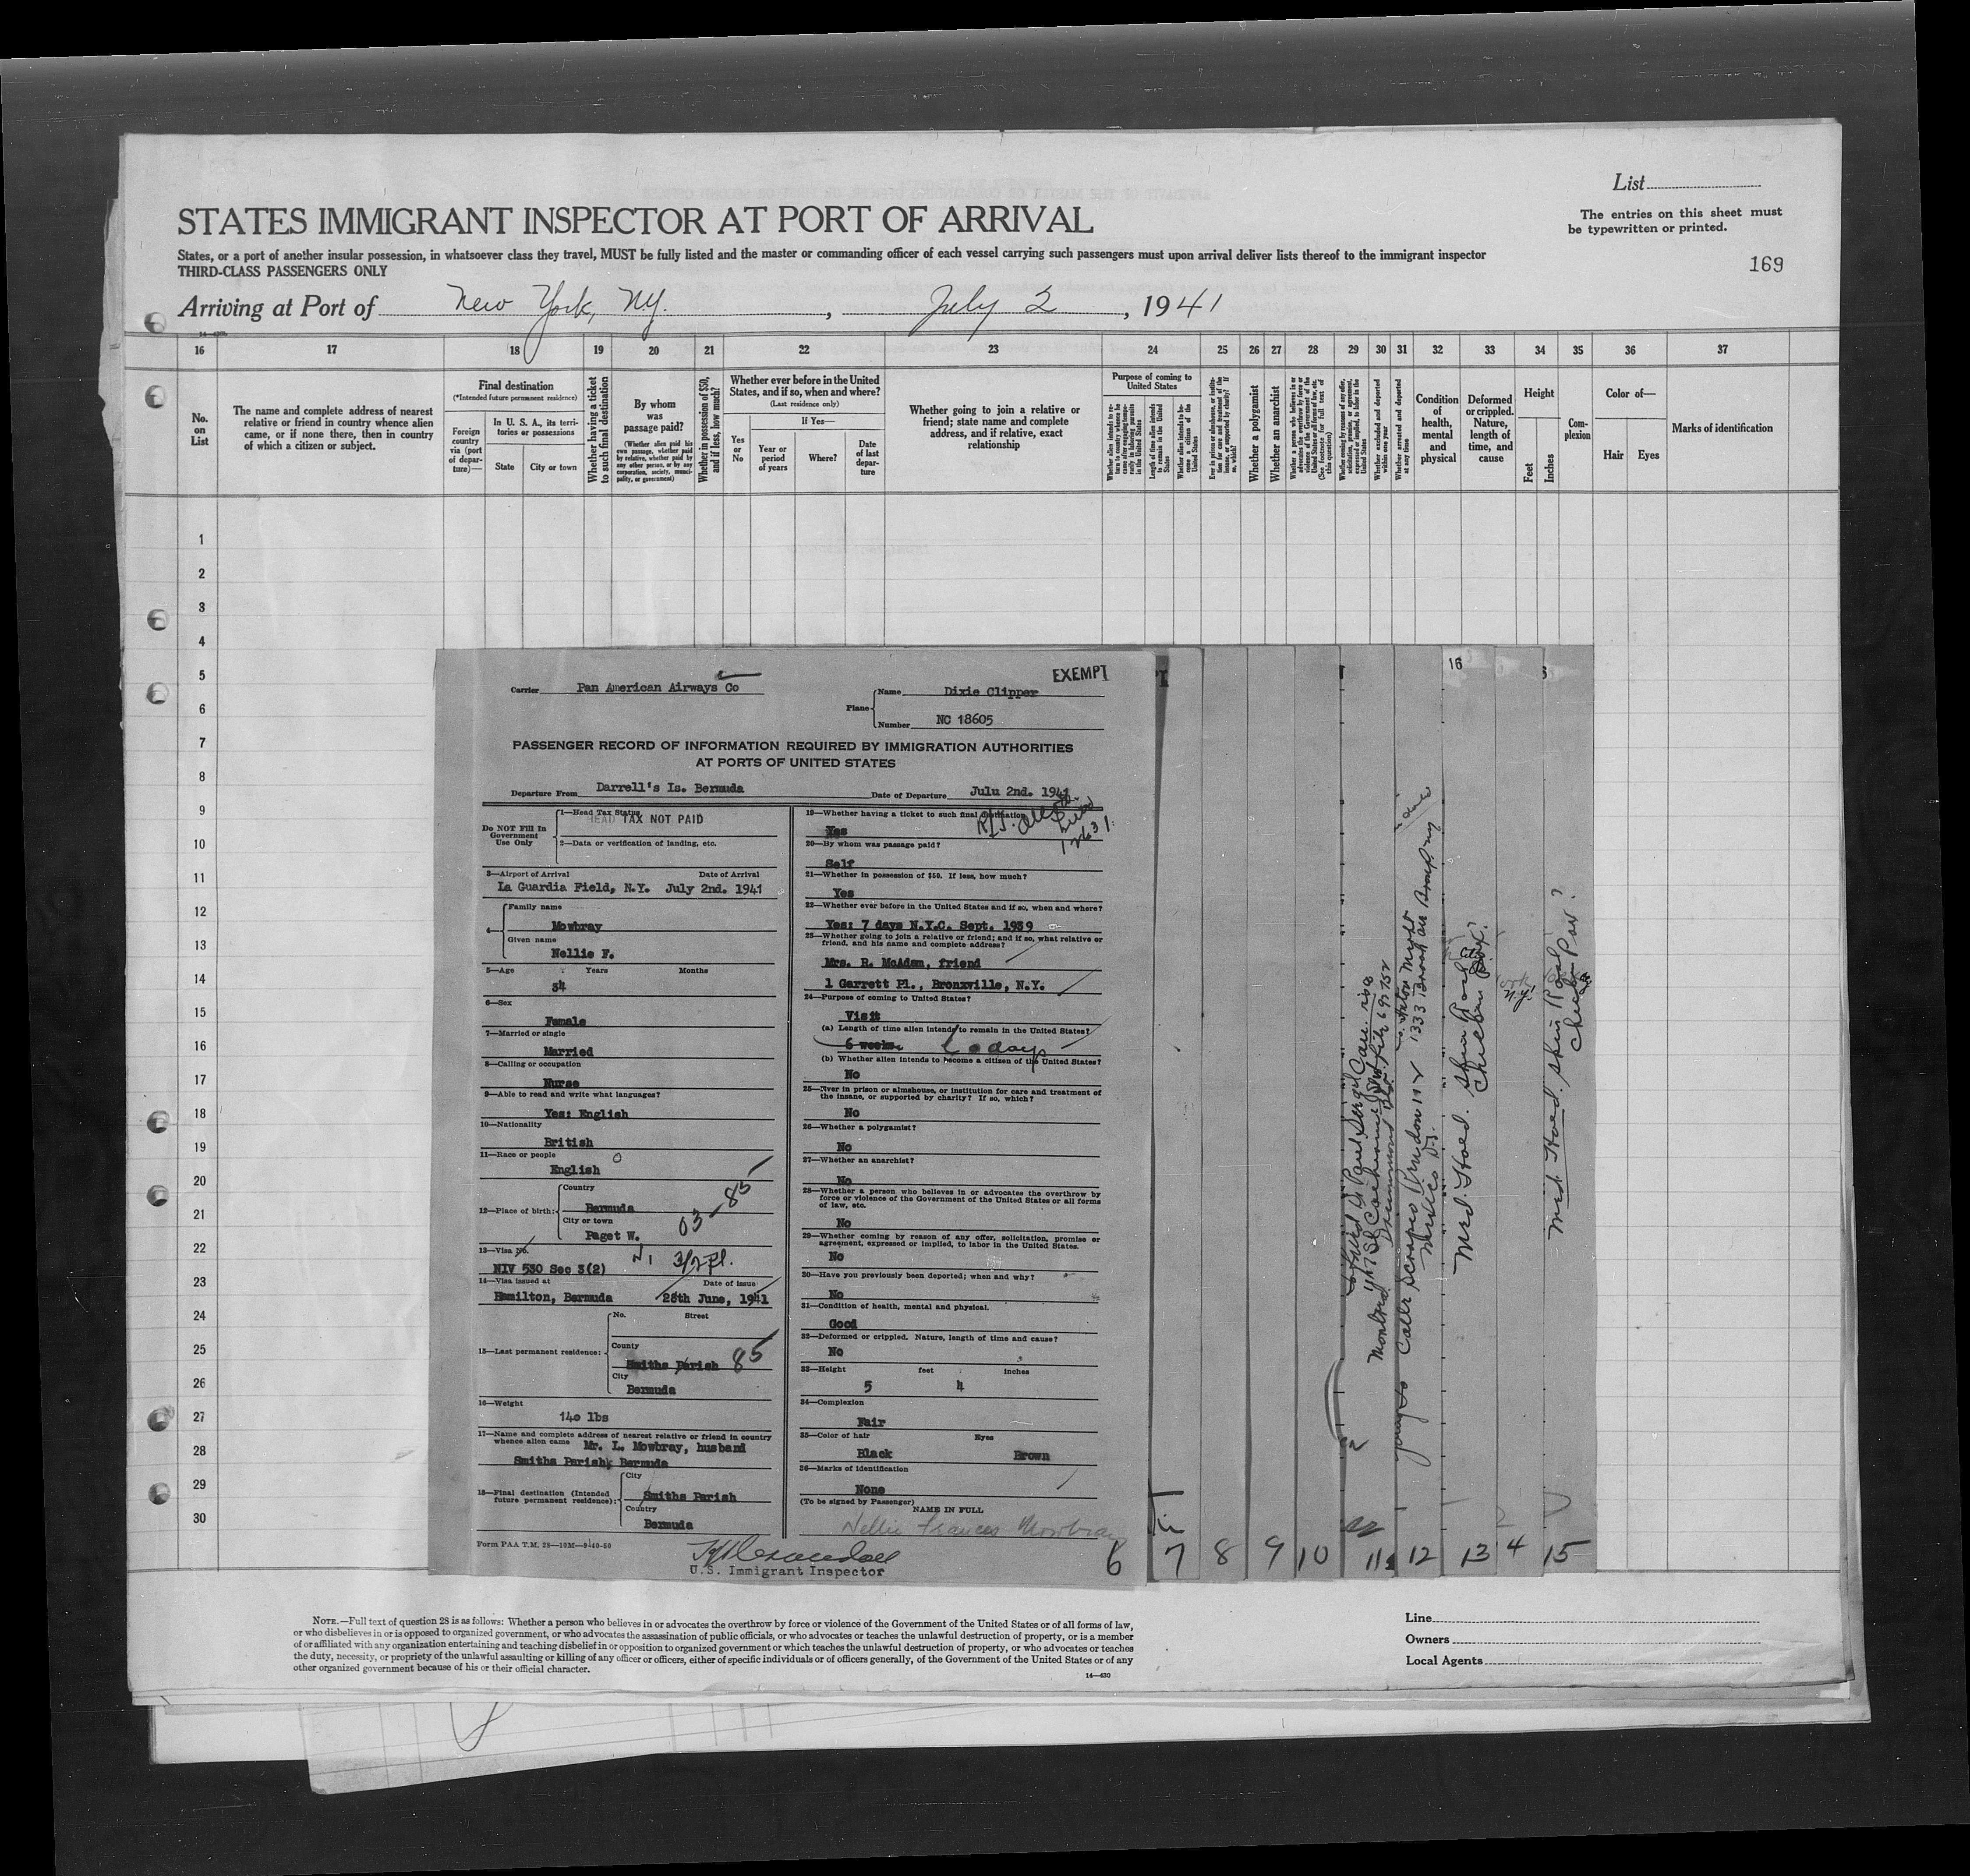 List
STATES IMMIGRANT INSPECTOR AT PORT OF ARRIVAL
The entries on this sheet must
be typewritten or printed.
States, or a port of another insular possession, in whatsoever class they travel, MUST be fully listed and the master or commanding officer of each vessel carrying such passengers must upon arrival deliver lists thereof to the immigrant inspector
THIRD-CLASS PASSENGERS ONLY
169
Arriving at Port of New York, N.Y., July 2, 1941
16 17 18 19 20 21 22 23 24 25 26 27 28 29 30 31 32 33 34 35 36 37
No. on List
The name and complete address of nearest relative or friend in country whence alien came, or if none there, then in country of which a citizen or subject.
Final destination
(*Intended future permanent residence)
Foreign country via (port of departure)—
In U. S. A., its territories or possessions
State
City or town
Whether having a ticket to such final destination
By whom was passage paid?
(Whether alien paid his own passage, whether paid by relative, whether paid by any other person, or by any corporation, society, municipality, or government)
Whether in possession of $50, and if less, how much?
Whether ever before in the United States, and if so, when and where?
(Last residence only)
Yes or No
If Yes—
Year or period of years
Where?
Date of last departure
Whether going to join a relative or friend; state name and complete address, and if relative, exact relationship
Purpose of coming to United States
Length of time alien intends to remain in the United States
Whether a polygamist
Whether an anarchist
Condition of health, mental and physical
Deformed or crippled. Nature, length of time, and cause
Height
Feet
Inches
Complexion
Color of—
Hair
Eyes
Marks of identification
1
2
3
4
5
6
7
8
9
10
11
12
13
14
15
16
17
18
19
20
21
22
23
24
25
26
27
28
29
30
EXEMPT
Carrier Pan American Airways Co
Plane Name Dixie Clipper
Number NC 18605
PASSENGER RECORD OF INFORMATION REQUIRED BY IMMIGRATION AUTHORITIES
AT PORTS OF UNITED STATES
Departure From Darrell's Is. Bermuda
Date of Departure Julu 2nd. 1941
Do NOT Fill In Government Use Only
1—Head Tax Status
HEAD TAX NOT PAID
2—Data or verification of landing, etc.
3—Airport of Arrival Date of Arrival
La Guardia Field, N.Y. July 2nd. 1941
4— Family name
Mowbray
Given name
Nellie F.
5—Age Years Months
34
6—Sex
Female
7—Married or single
Married
8—Calling or occupation
Nurse
9—Able to read and write what languages?
Yes: English
10—Nationality
British
11—Race or people
English
12—Place of birth: Country
Bermuda
City or town
Paget W.
03-85
13—Visa No.
NIV 530 Sec 3(2)
14—Visa issued at Date of issue
Hamilton, Bermuda 28th June, 1941
15—Last permanent residence: No. Street
County
Smiths Parish 85
City
Bermuda
16—Weight
140 lbs
17—Name and complete address of nearest relative or friend in country whence alien came Mr. L. Mowbray, husband
Smiths Parish, Bermuda
18—Final destination (Intended future permanent residence): City
Smiths Parish
Country
Bermuda
Form PAA T.M. 28—10M—9-40-50
19—Whether having a ticket to such final destination
Yes
20—By whom was passage paid?
Self
21—Whether in possession of $50. If less, how much?
Yes
22—Whether ever before in the United States and if so, when and where?
Yes: 7 days N.Y.C. Sept. 1939
23—Whether going to join a relative or friend; and if so, what relative or friend, and his name and complete address?
Mrs. R. McAdam, friend
1 Garrett Pl., Bronxville, N.Y.
24—Purpose of coming to United States?
Visit
(a) Length of time alien intends to remain in the United States?
6 weeks 60 days
(b) Whether alien intends to become a citizen of the United States?
No
25—Ever in prison or almshouse, or institution for care and treatment of the insane, or supported by charity? If so, which?
No
26—Whether a polygamist?
No
27—Whether an anarchist?
No
28—Whether a person who believes in or advocates the overthrow by force or violence of the Government of the United States or all forms of law, etc.
No
29—Whether coming by reason of any offer, solicitation, promise or agreement, expressed or implied, to labor in the United States.
No
30—Have you previously been deported; when and why?
No
31—Condition of health, mental and physical.
Good
32—Deformed or crippled. Nature, length of time and cause?
No
33—Height feet inches
5 4
34—Complexion
Fair
35—Color of hair Eyes
Black Brown
36—Marks of identification
None
(To be signed by Passenger)
NAME IN FULL
Nellie Frances Mowbray
U.S. Immigrant Inspector
6 7 8 9 10 11 12 13 4 15
NOTE.—Full text of question 28 is as follows: Whether a person who believes in or advocates the overthrow by force or violence of the Government of the United States or of all forms of law,
or who disbelieves in or is opposed to organized government, or who advocates the assassination of public officials, or who advocates or teaches the unlawful destruction of property, or is a member
of or affiliated with any organization entertaining and teaching disbelief in or opposition to organized government or which teaches the unlawful destruction of property, or who advocates or teaches
the duty, necessity, or propriety of the unlawful assaulting or killing of any officer or officers, either of specific individuals or of officers generally, of the Government of the United States or of any
other organized government because of his or their official character.
14—430
Line
Owners
Local Agents